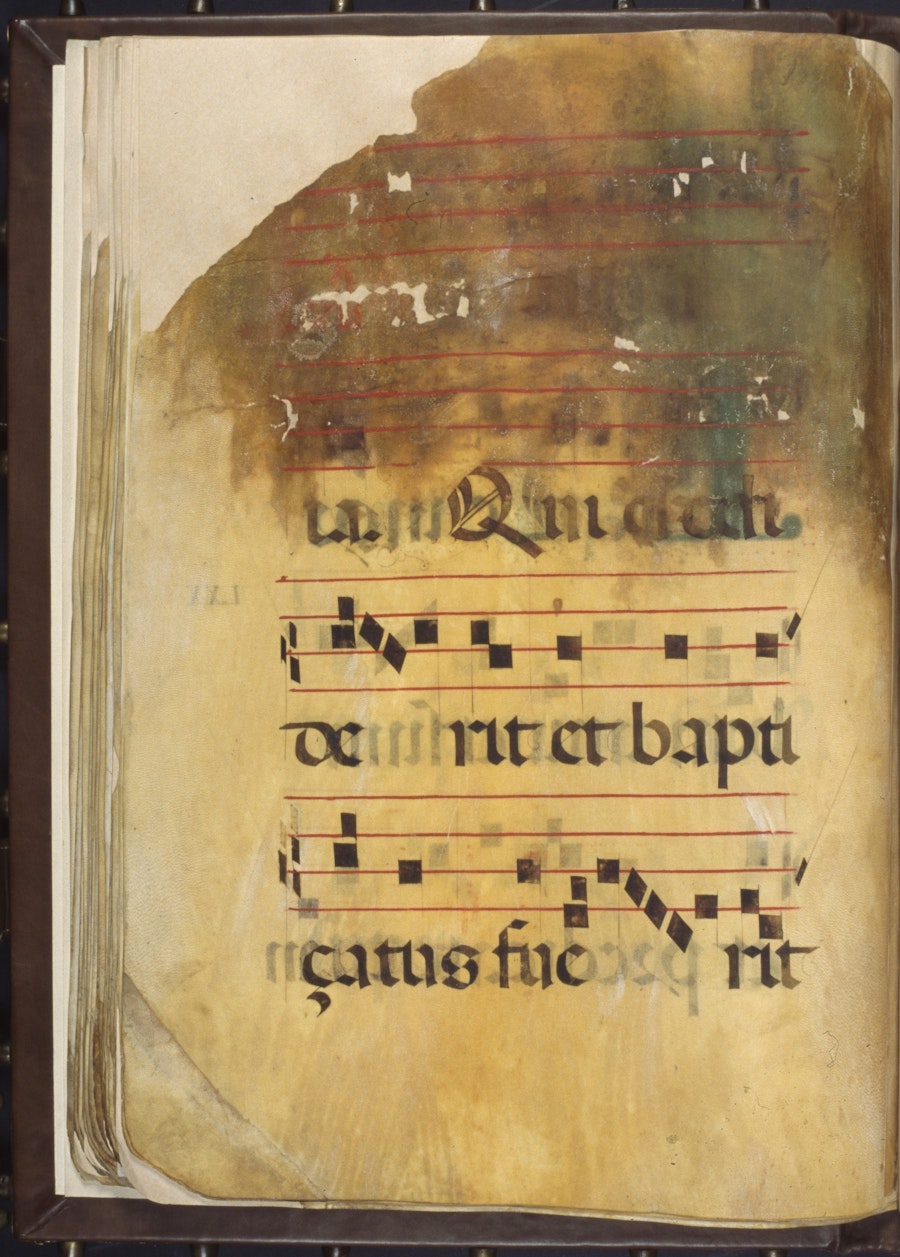 ia. Qui credi
de rit et bapti
çatus fue rit